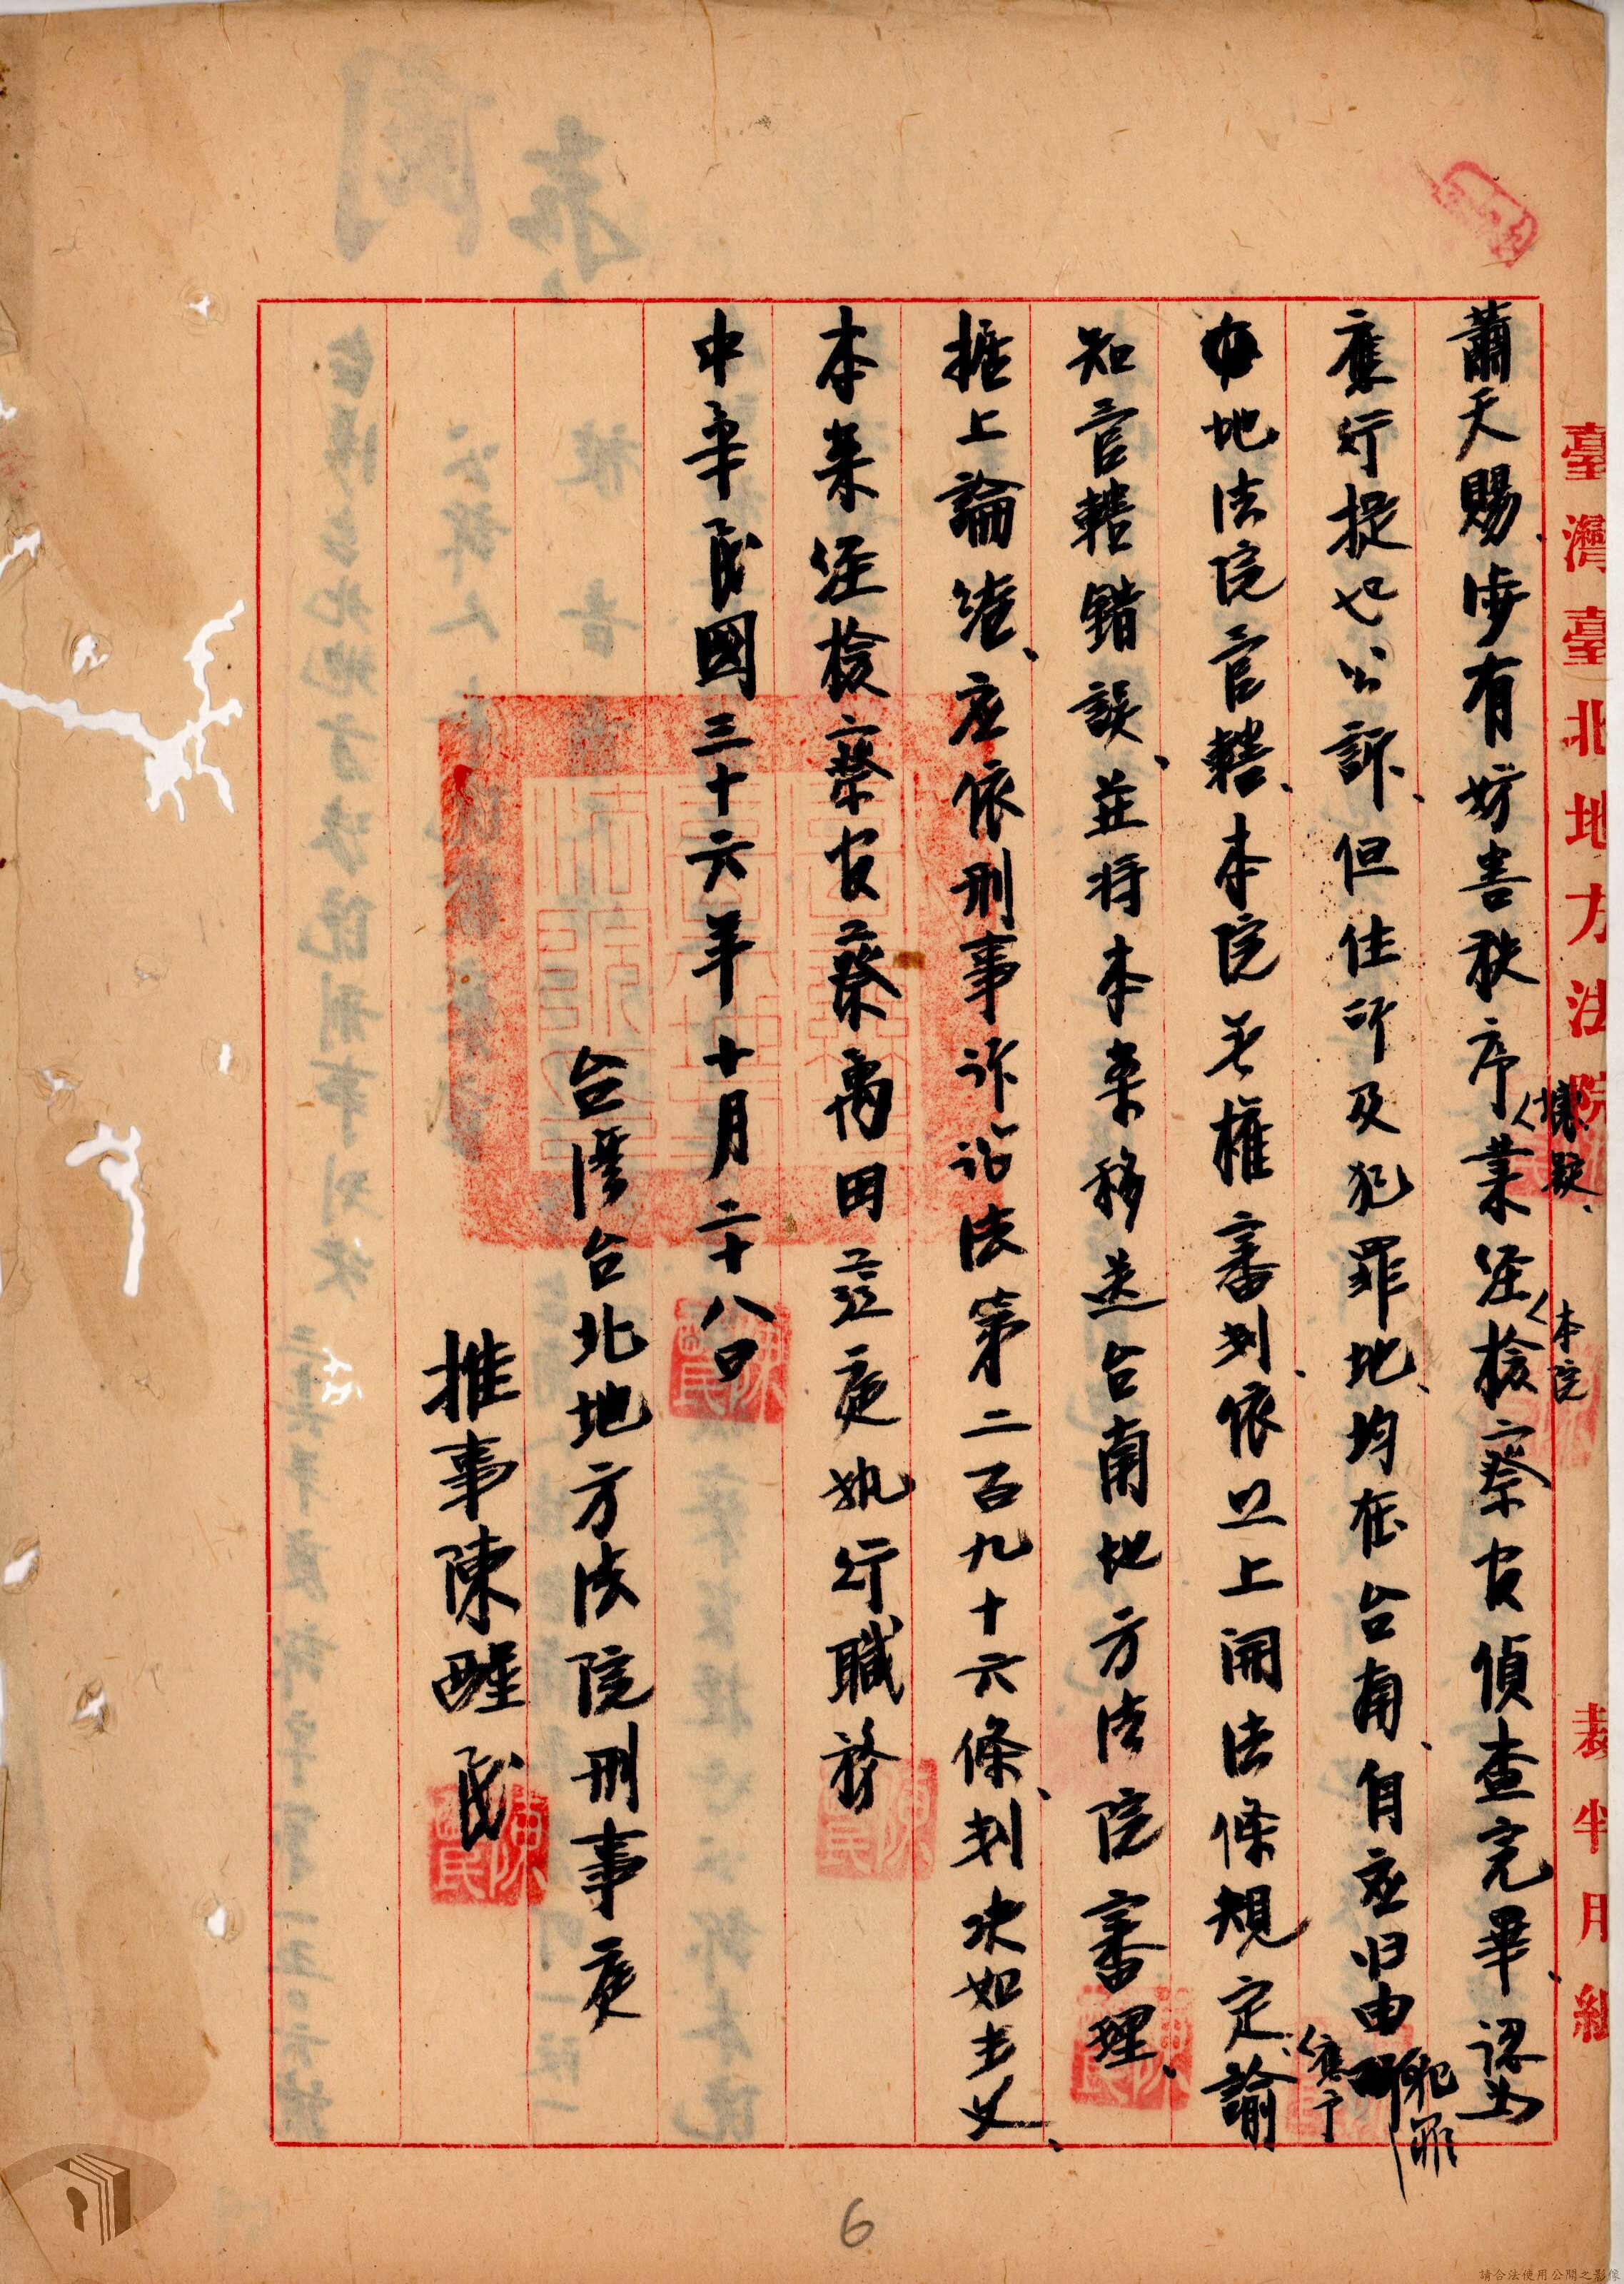 臺灣臺北地方法院 裁判用紙
蕭天賜涉有妨害秩序嫌疑業經本院檢察官偵查完畢認為
應行提起公訴但住所及犯罪地均在台南自应归由犯罪
地法院官轄本院无權審判依以上開法條規定應予諭
知官轄錯誤並将本案移送台南地方法院審理
据上論結应依刑事訴訟法第二百九十六條判決如主文
本案经檢察官蔡禹田蒞庭執行職務
中華民國三十六年十月二十八日
台灣台北地方法院刑事庭
推事陳醒民
6
請合法使用公開之影像